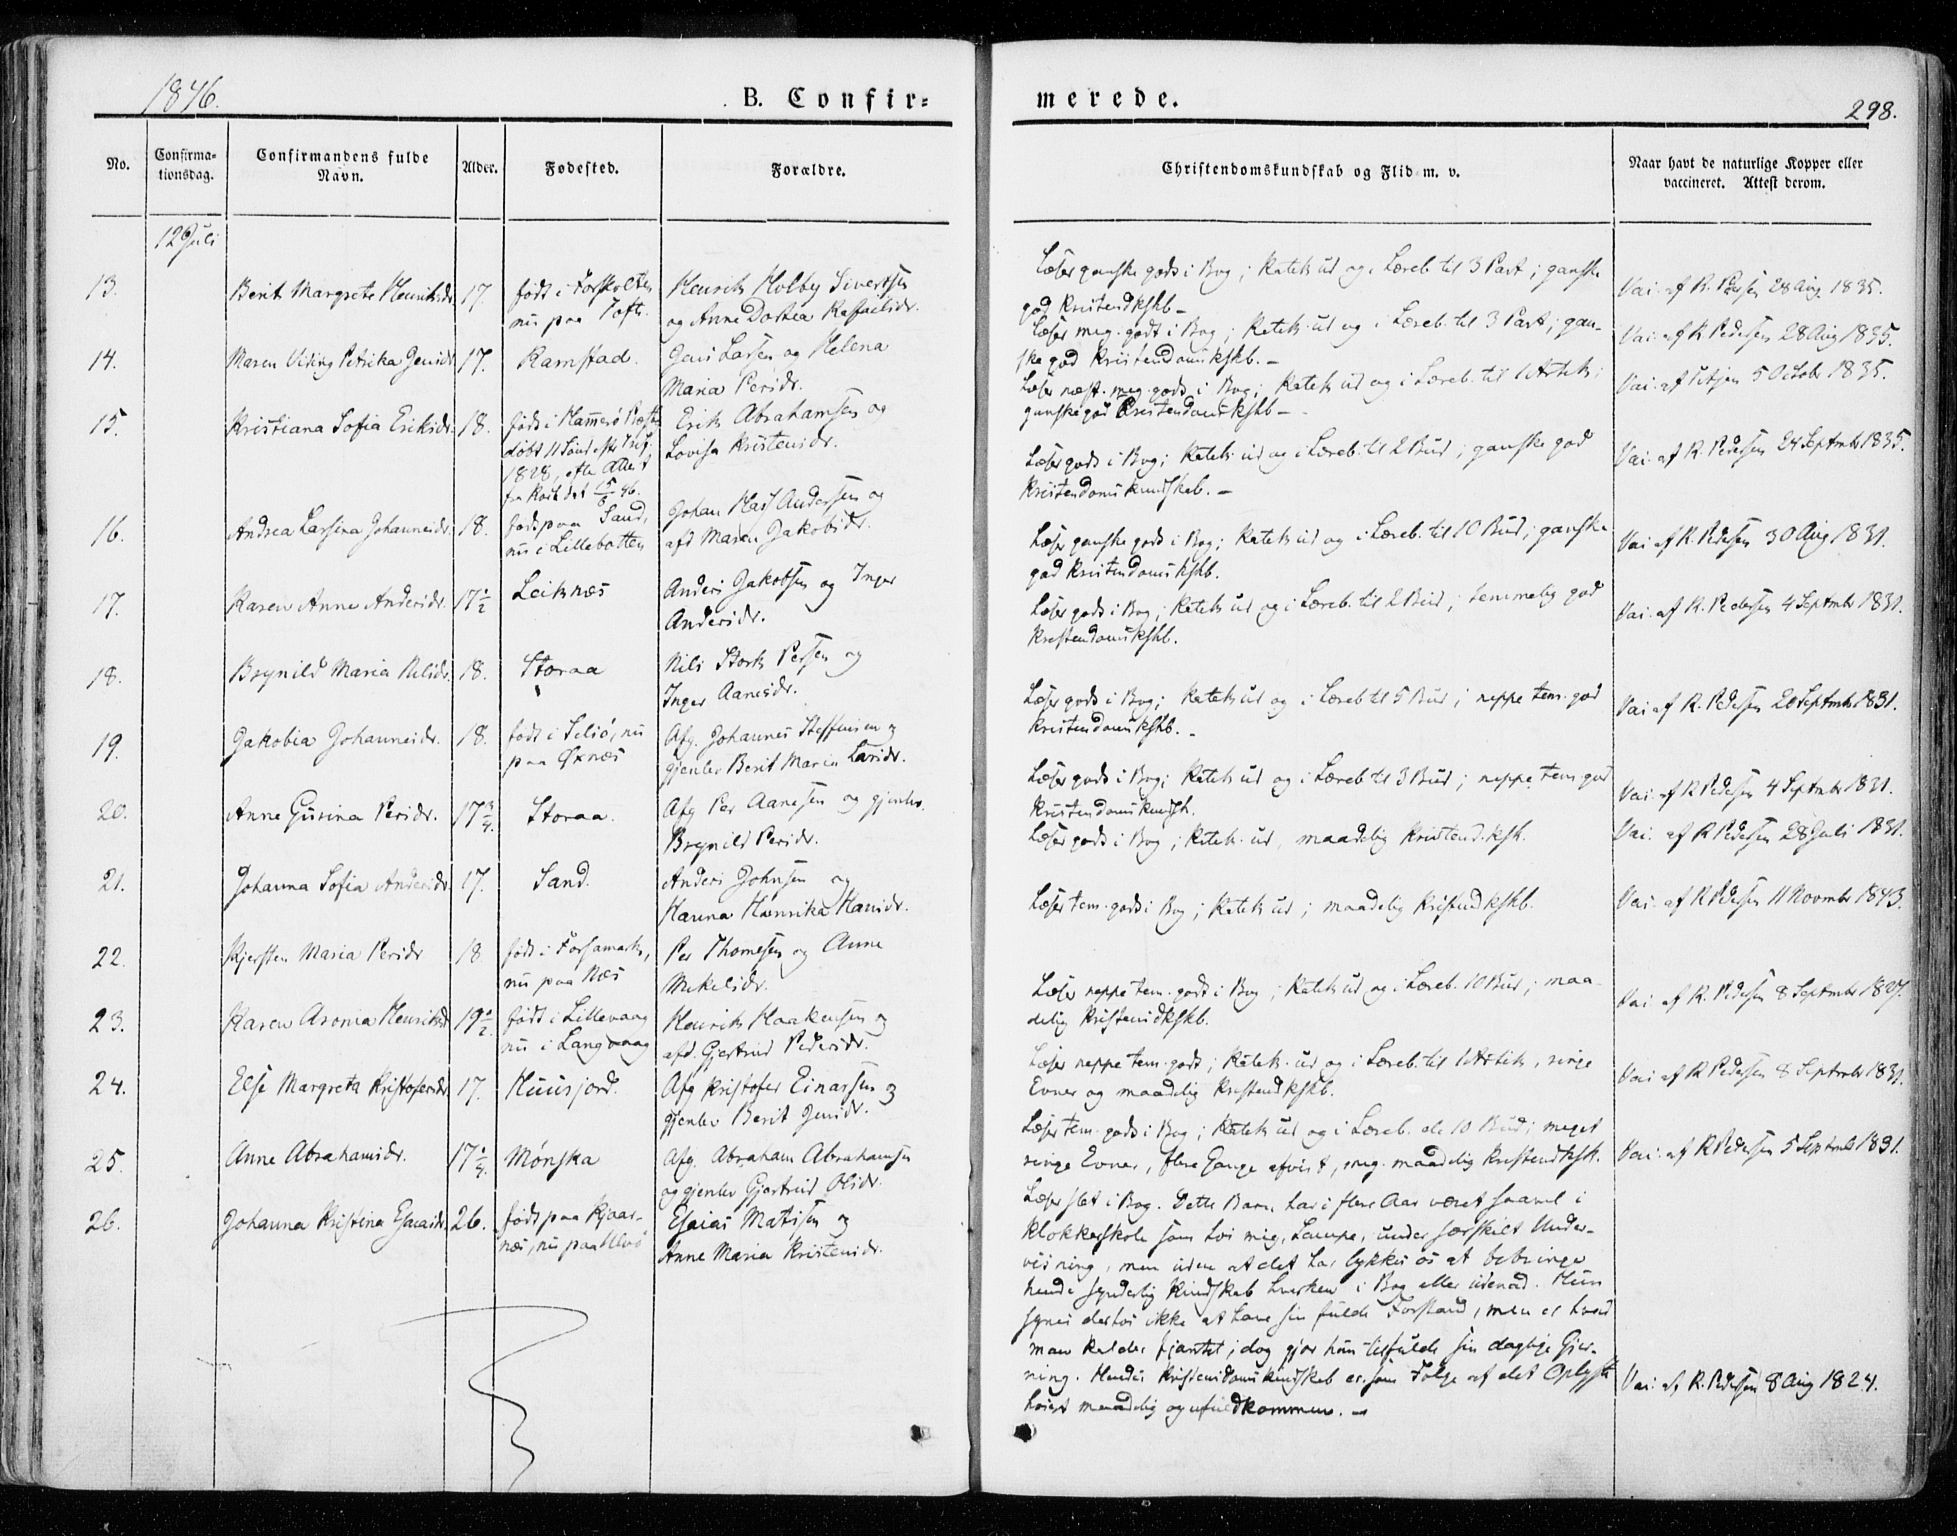 1846.
B. Confir-
merede.
298.
No.
Confirma-
tionsdag.
Confirmandens fulde
Navn.
Alder.
Fødested.
Forældre.
Christendomskundskab og Flid m. v.
Naar havt de naturlige Kopper eller
vaccineret. Attest derom.
12 Juli
13.
Berit Margrete Henriksdr.
17.
født i
nu paa Tofte.
Henrik Holby Sivertsen
og Anne Dortea Rafaelsdr.
Læser ganske godt i Bog; Katek. ud og i Læreb. til 3 Part; ganske
god Kristendkskb.
Vai. af R. Persen 28 Aug 1835.
14.
Maren Petrika Jensdr.
17.
Ramstad.
Jens Larsen og Helena
Maria Persdr.
Læser meg. godt i Bog; Katek. ud og i Læreb. til 3 Part; gan-
ske god Kristendomskskb.
Vai. af R Pedersen 28 Aug 1835.
15.
Kristiana Sofia Eriksdr.
18.
født i Hammerø
døbt 11 Sønd. eft. Trif.
1828, efter Attest
fra
Erik Abrahamsen og
Lovisa Kristensdr.
Læser næst. meg. godt i Bog; Katek. ud og i Læreb. til 1 Artik;
ganske god Kristendomskskb
Vai. af 5 October 1835.
16.
Andrea Larsina Johannesdr.
18.
født paa Sand,
nu i Lillebotten
Johan Andersen og
afd Maren Jakobsdr.
Læser godt i Bog; Katek. ud og i Læreb. til 2 Bud; ganske god
Kristendoms kundskab.
Vai. af R. Pedersen 24 Septmbr 1835.
17.
Karen Anna Andersdr.
17 1/2
Leiknæs
Anders Jakobsen og Inger
Andersdr.
Læser ganske godt i Bog; Katek ud og i Læreb. til 10 Bud; ganske
god Kristendomskskb.
Vai. af R. Pedersen 30 Aug 1831.
18.
Brynild Maria Nilsdr.
18.
Storaa
Nils Stork Persen og
Inger Aanesdr.
Læser godt i Bog; Katek ud og i Læreb. til 2 Bud; temmelig god
Kristendomskskb.
Vai. af R. Pedersen 4 Septmbr 1831.
19.
Jakobia Johannesdr.
18.
født i , nu
paa Øxnæs
Afg. Johannes Steffensen og
gjenlev Berit Maria Larsdr.
Læser godt i Bog; Katek ud og i Læreb til 5 Bud; neppe tem. god
Kristendomskskb.
Vai af R. Pedersen 20 Septmbr 1831.
20.
Anne Gurina Persdr.
17 3/4.
Storaa.
Afg Per Aanesen og gjenlev.
Brynild Persdr.
Læser godt i Bog; Katek ud og i Læreb til 3 Bud; neppe tem. god
Kristendomskundsk.
Vai. af R Pedersen 4 Septmbr 1831.
21.
Johanna Sofia Andersdr.
17.
Sand.
Anders Johnsen og
Hanna Henrika Hansdr.
Læser godt i Bog; Katek. ud, maadelig Kristend.ksk.
Vai. af R Pedersen 28 Juli 1831.
22.
Kjersten Maria Persdr
18
født i Forsamark,
nu paa Næs
Per Thomesen og Anne
Mikelsdr.
Læser tem. godt i Bog; Katek ud; maadelig Kristendkskb.
Vai. af R Pedersen 11 Novmbr 1843.
23.
Karen Aronia Henriksdr
19 1/2
født i Lillevaag
nu i Langvaag
Henrik Haakensen og
afd. Gjertrud Pedersdr.
Læser neppe tem. godt i Bog; Katek ud og i Læreb. 10 Bud; maa-
delig Kristendkskb.
Vai. af R. Pedersen 8 Septmbr
24.
Else Margreta Kristofersdr
17.
Huusjord.
Afg Kristofer Einarsen og
gjenlev Berit Jensdr.
Læser neppe tem. godt; Katek. ud og i Læreb. til 1 Artik, ringe
Evner og maadelig Kristendkskb.
Vai af R Pedersen 8 Septmbr 1831.
25.
Anne Abrahamsdr.
17 1/4.
Mønska
Afg. Abraham Abrahamsen
og gjenlev Gjertrud Olsdr.
Læser tem. godt i Bog; Katek ud og i Læreb. de 10 Bud; meget
ringe Evner, flere Gange afvist, meg. maadelig Kristendksk.
Vai. af R Pedersen 5 Septmbr 1831.
26.
Johanna Kristina Esaiasdr.
26.
født paa Kjaar-
næs, nu paa Ulvø
Esaias Matisen og
Anne Maria Kristensdr.
Læser slet i Bog. Dette Barn har i flere Aar været saavel i
Klokkerskole som hos mig, , under særskilt Under-
visning, men uden at det har lykkes os at bebringe
hende synderlig Kundskab hverken i Bog eller udenad. Hun
synes derhos ikke at have sin fulde Forstand, men er hvad
man kalder fjantet; dog gjør hun tilfulde sin daglige Gjer-
ning. Hendes Kristendomskundskab er som Følge af det Oplyste
høist maadelig og ufuldkommen.
Vai. af R. Pedersen 8 Aug 1824.